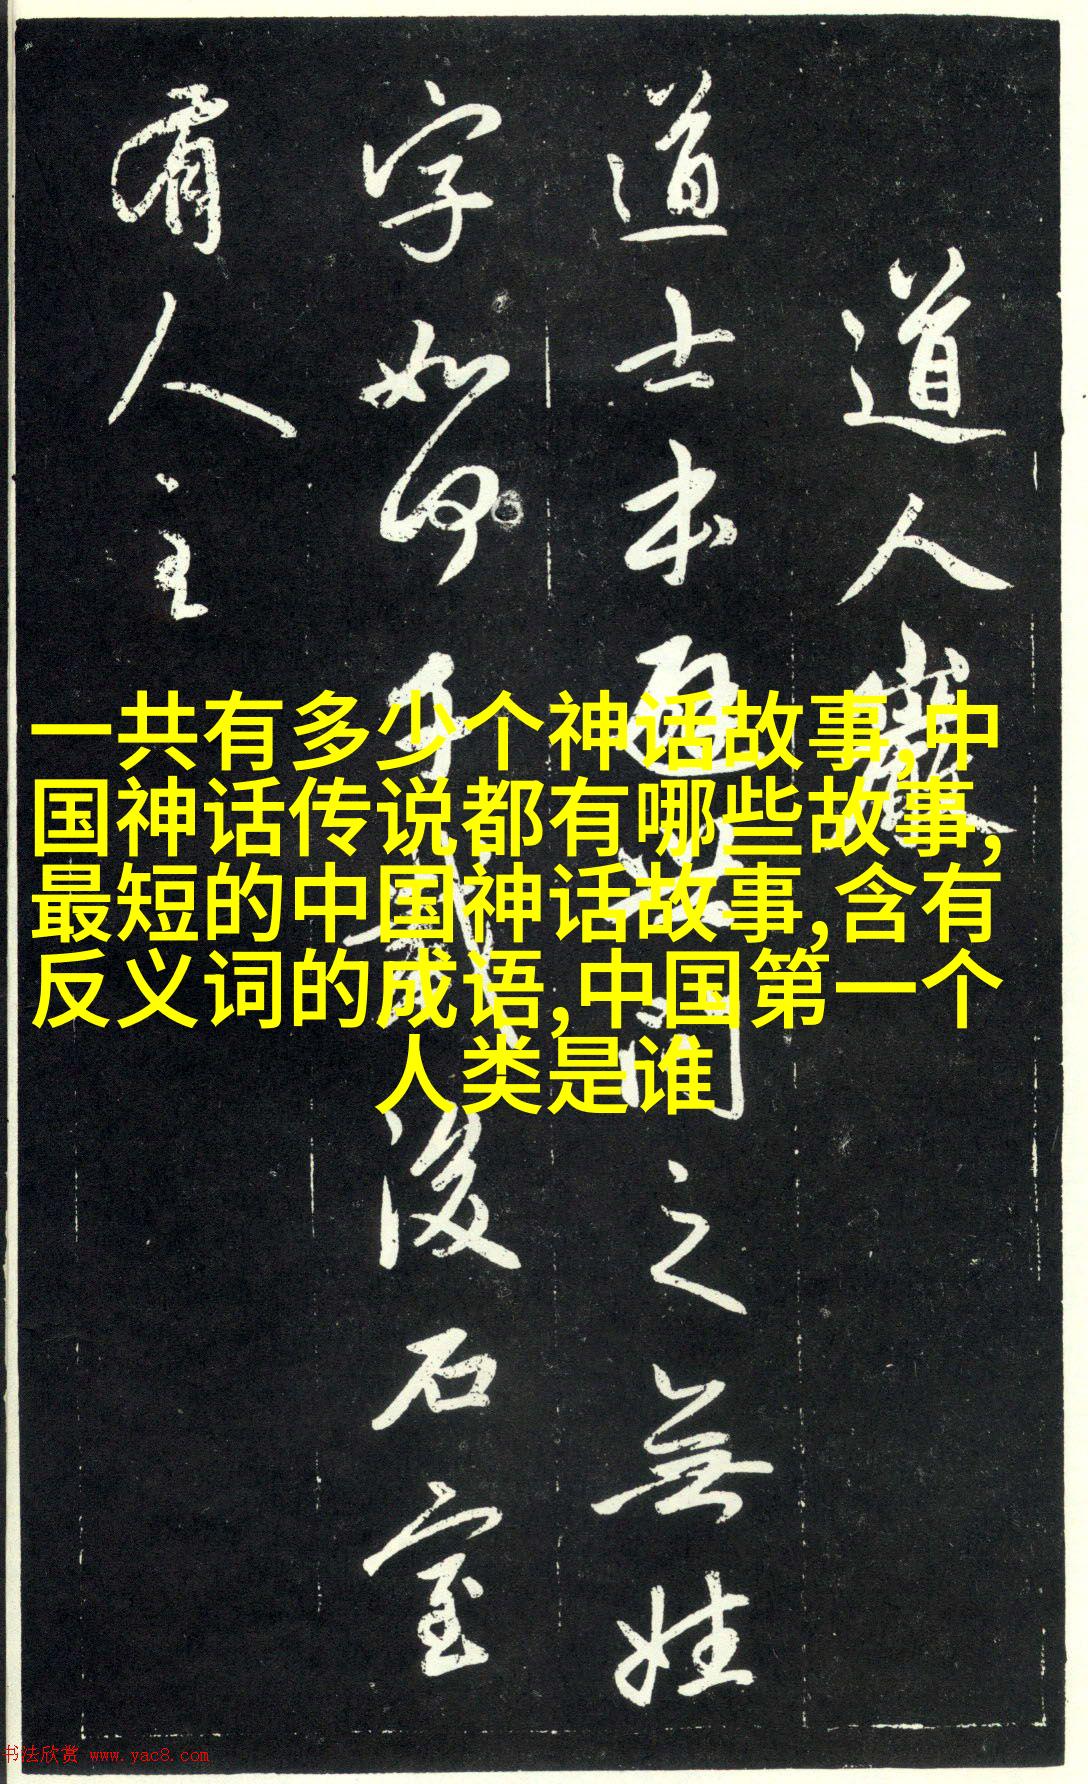 道人巖
道士本通世間之無姓
字如何千載後石室
有人主
一共有多少个神话故事,中
国神话传说都有哪些故事,
最短的中国神话故事,含有
反义词的成语,中国第一个
人类是谁
书法欣赏 www.yac8.com